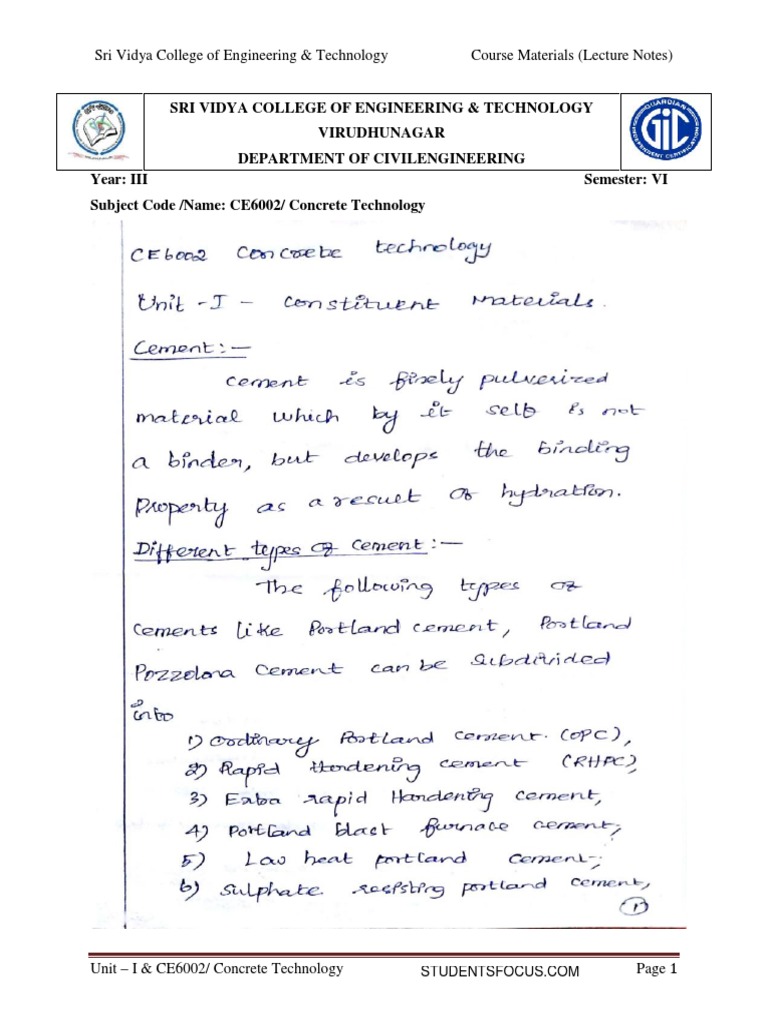 Sri Vidya College of Engineering & Technology Course Materials (Lecture Notes)
SRI VIDYA COLLEGE OF ENGINEERING & TECHNOLOGY
VIRUDHUNAGAR
DEPARTMENT OF CIVILENGINEERING
GUARDIAN
GIC
INDEPENDENT CERTIFICATION
Year: III Semester: VI
Subject Code /Name: CE6002/ Concrete Technology
CE6002 Concrete technology
Unit - I - Constituent Materials.
Cement:-
Cement is finely pulverized
material which by it self is not
a binder, but develops the binding
Property as a result of hydration.
Different types of Cement:-
The following types of
Cements like Portland cement, Portland
Pozzolona Cement can be Subdivided
into
1) Ordinary Portland Cement. (OPC),
2) Rapid Hardening cement (RHPC),
3) Extra rapid Hardening Cement,
4) Portland blast furnace cement;
5) Low heat portland cement;
6) Sulphate resisting portland cement,
1
Unit – I & CE6002/ Concrete Technology STUDENTSFOCUS.COM Page 1